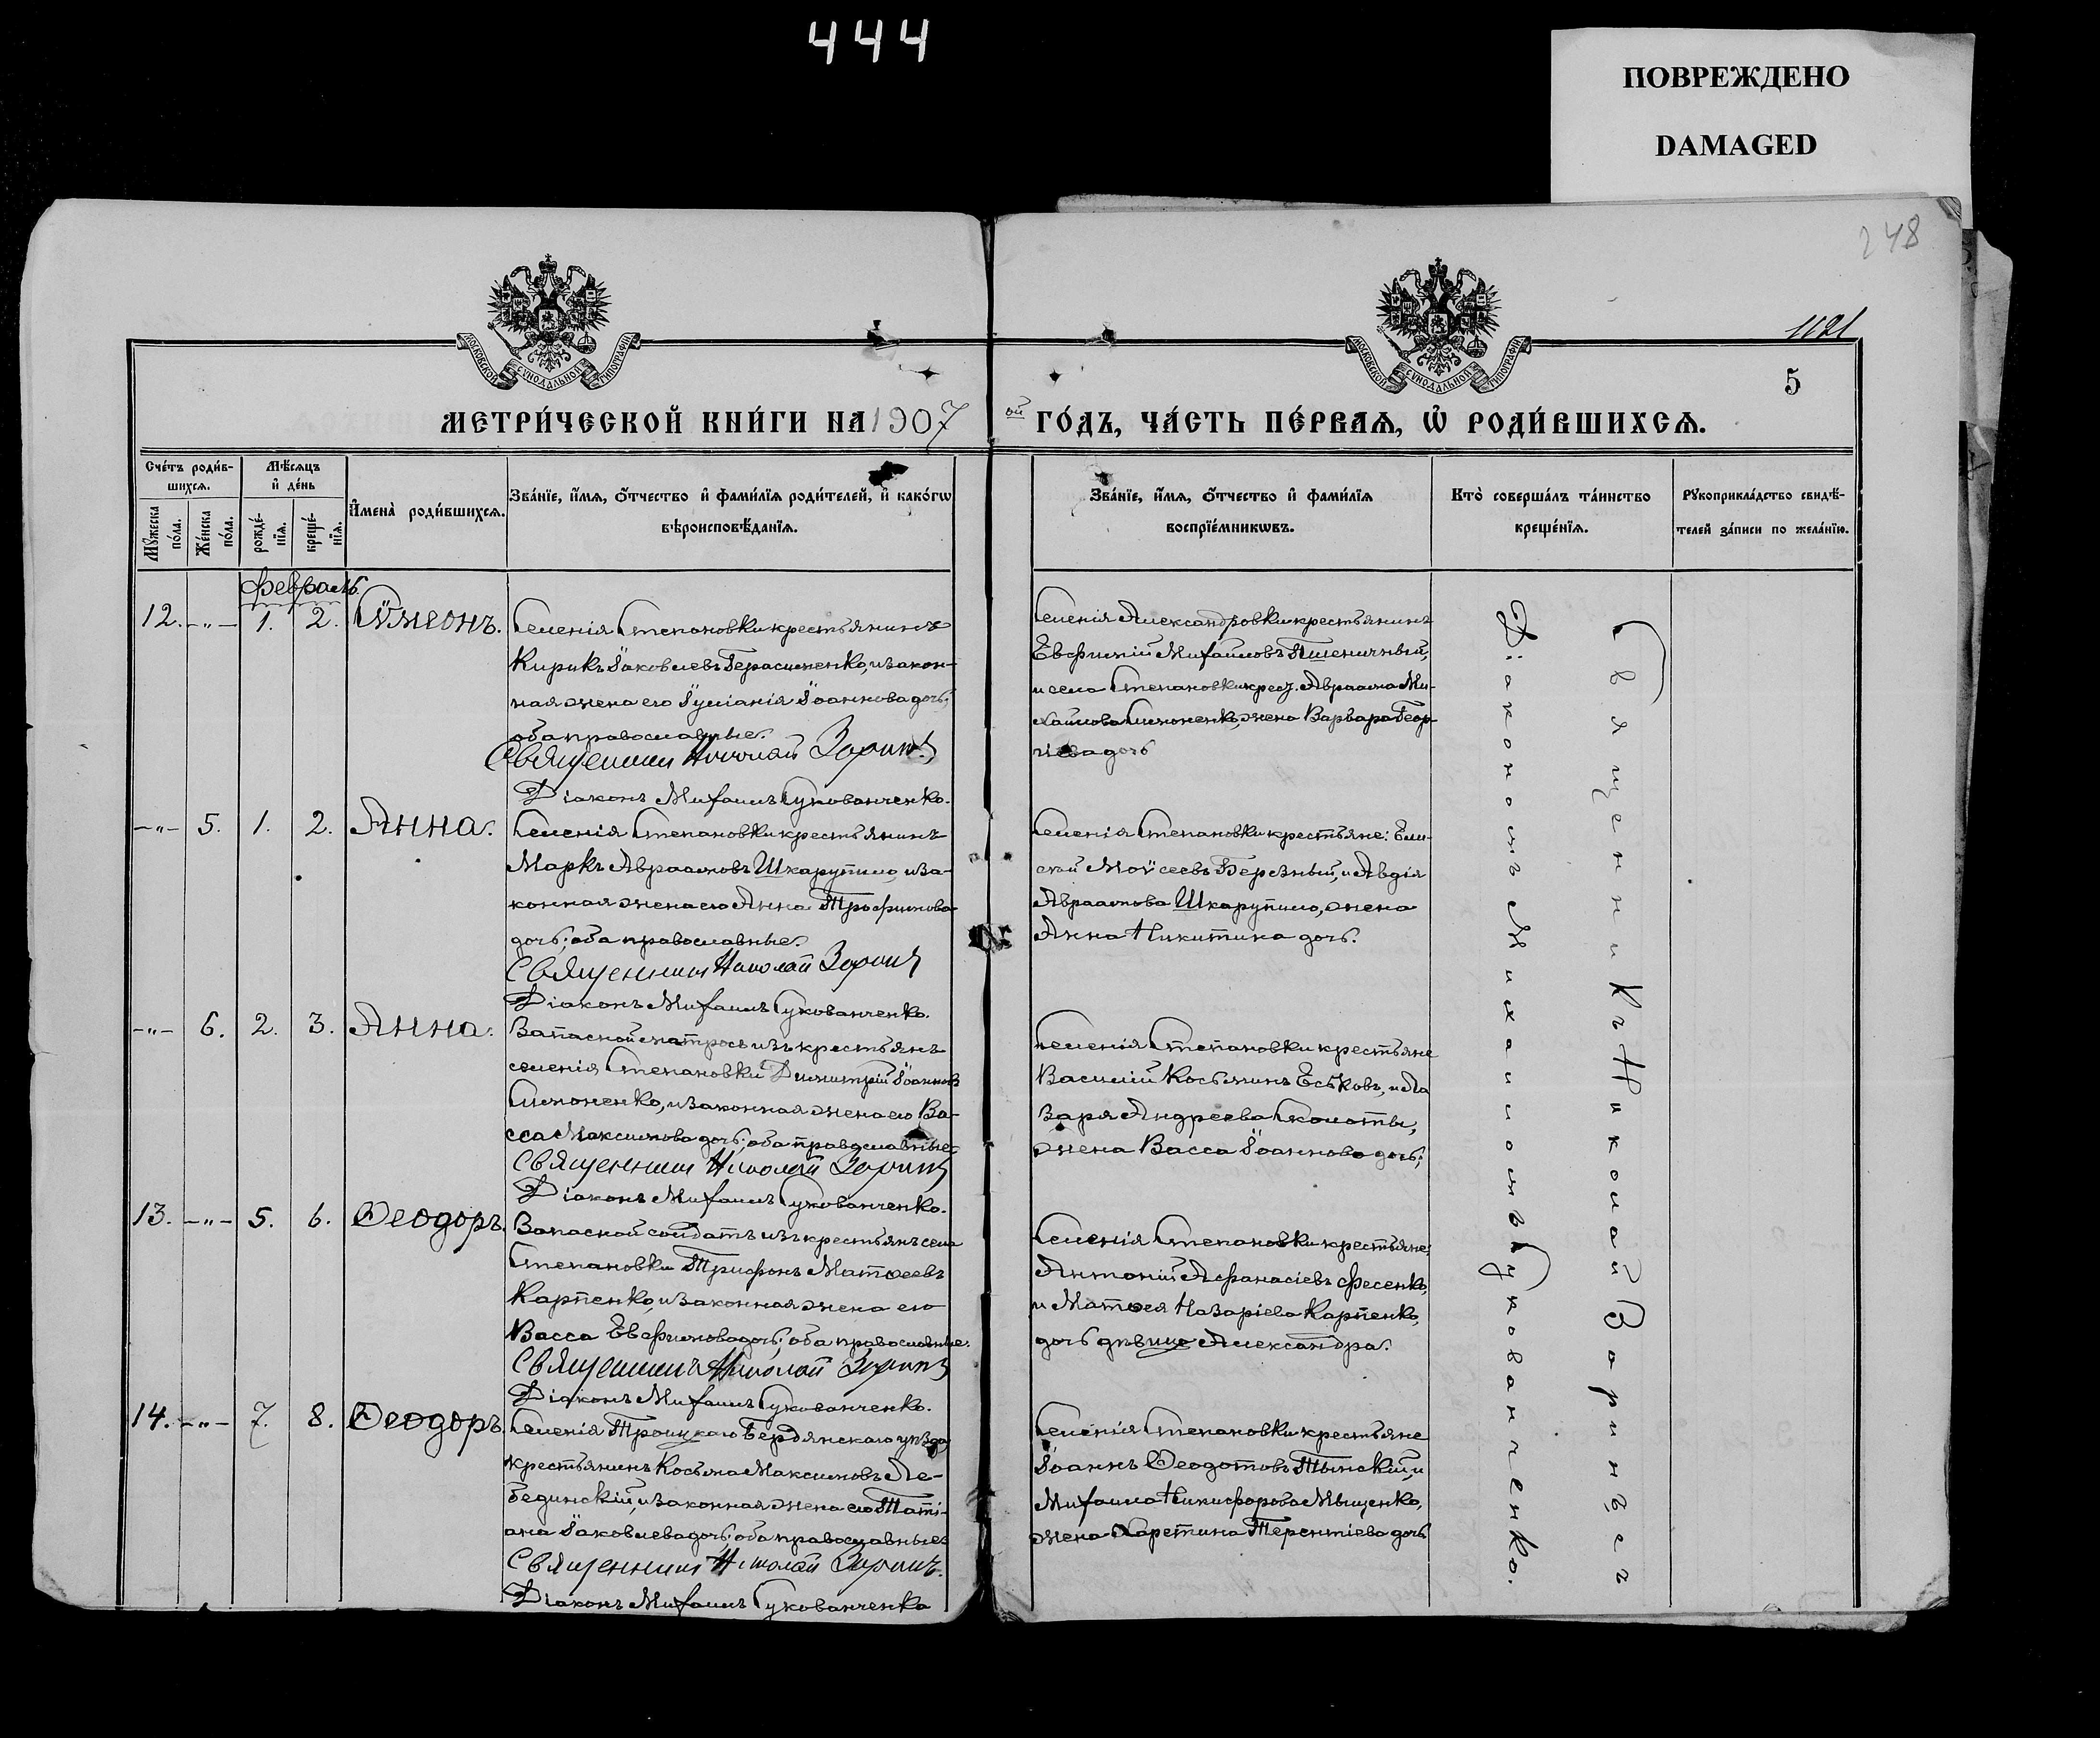 444
ПОВРЕЖДЕНО
DAMAGED
248
1121
МОСКОВСКОЙ СѴНОДАЛЬНОЙ ТИПОГРАФІИ
МОСКОВСКОЙ СѴНОДАЛЬНОЙ ТИПОГРАФІИ
5
МЕТРИ́ЧЕСКОЙ КНИ́ГИ НА 1907 ой ГО́ДЪ, ЧА́СТЬ ПЕ́РВАѦ, Ѡ҆ РОДИ́ВШИХСѦ.
Сче́тъ роди́вшихсѧ.
Мꙋ́жеска по́ла.
Же́нска по́ла.
Мѣ́сѧцъ и҆ де́нь
рожде́нїѧ.
креще́нїѧ.
И҆мена̀ роди́вшихсѧ.
Зва́нїе, и҆́мѧ, ѻ҆́тчество и҆ фами́лїѧ роди́телей, и҆ како́гѡ
вѣроисповѣ́данїѧ.
Зва́нїе, и҆́мѧ, ѻ҆́тчество и҆ фами́лїѧ
воспрїе́мникѡвъ.
Кто̀ соверша́лъ та́инство
креще́нїѧ.
Рꙋкоприкла́дство свидѣ́-
телей за́писи по жела́нїю.
Февраль.
12. -„- 1. 2. Сѵмеонъ.
Селенія Степановки крестьянинъ
Кирикъ Іаковлевъ Герасименко, и закон-
ная жена его Іуліанія Іоаннова дочь;
оба православные.
Священникъ Николай Зоринъ
Діаконъ Михаилъ Сукованченко.
Селенія Александровки крестьянинъ
Евфимій Михаиловъ Пшеничный,
и села Степановки крест. Авраама Ми-
хаилова Симоненко, жена Варвара Геор-
гіева дочь
-„- 5. 1. 2. Анна.
Селенія Степановки крестьянинъ
Маркъ Авраамовъ Шкарупило, и за-
конная жена его Анна Трофимова
дочь; оба православные.
Священникъ Николай Зоринъ
Діаконъ Михаилъ Сукованченко.
Селенія Степановки крестьяне: Ели-
сей Моѵсеевъ Березный, и Авдія
Авраамова Шкарупило, жена
Анна Никитина дочь.
-„- 6. 2. 3. Анна.
Запасной матросъ изъ крестьянъ
селенія Степановки Димитрій Іоанновъ
Симоненко, и законная жена его Ва-
сса Максимова дочь; оба православные
Священникъ Николай Зоринъ
Діаконъ Михаилъ Сукованченко.
Селенія Степановки крестьяне
Василій Косьминъ Еськовъ, и Ла
заря Андреева Скомоты,
жена Васса Іоаннова дочь;
13. -„- 5. 6. Ѳеодоръ.
Запасной солдатъ изъ крестьянъ села
Степановки Трифонъ Матѳеевъ
Карпенко, и законная жена его
Васса Евфимова дочь; оба православные.
Священникъ Николай Зоринъ
Діаконъ Михаилъ Сукованченко.
Селенія Степановки крестьяне:
Антоній Афанасіевъ Фесенко,
и Матѳея Назаріева Карпенко,
дочь дѣвица Александра.
14. -„- 7. 8. Ѳеодоръ.
Селенія Троицкаго Бердянскаго уѣзда
крестьянинъ Косьма Максимовъ Ле-
бединскій, и законная жена его Таті-
ана Іаковлева дочь; оба православные
Священникъ Николай Зоринъ.
Діаконъ Михаилъ Сукованченко
Селенія Степановки крестьяне
Іоаннъ Ѳеодотовъ Тынскій, и
Михаила Никифорова Мищенко,
жена Харетина Терентіева дочь
Священникъ Николай Зоринъ съ
Діакономъ Михаиломъ Сукованченко.